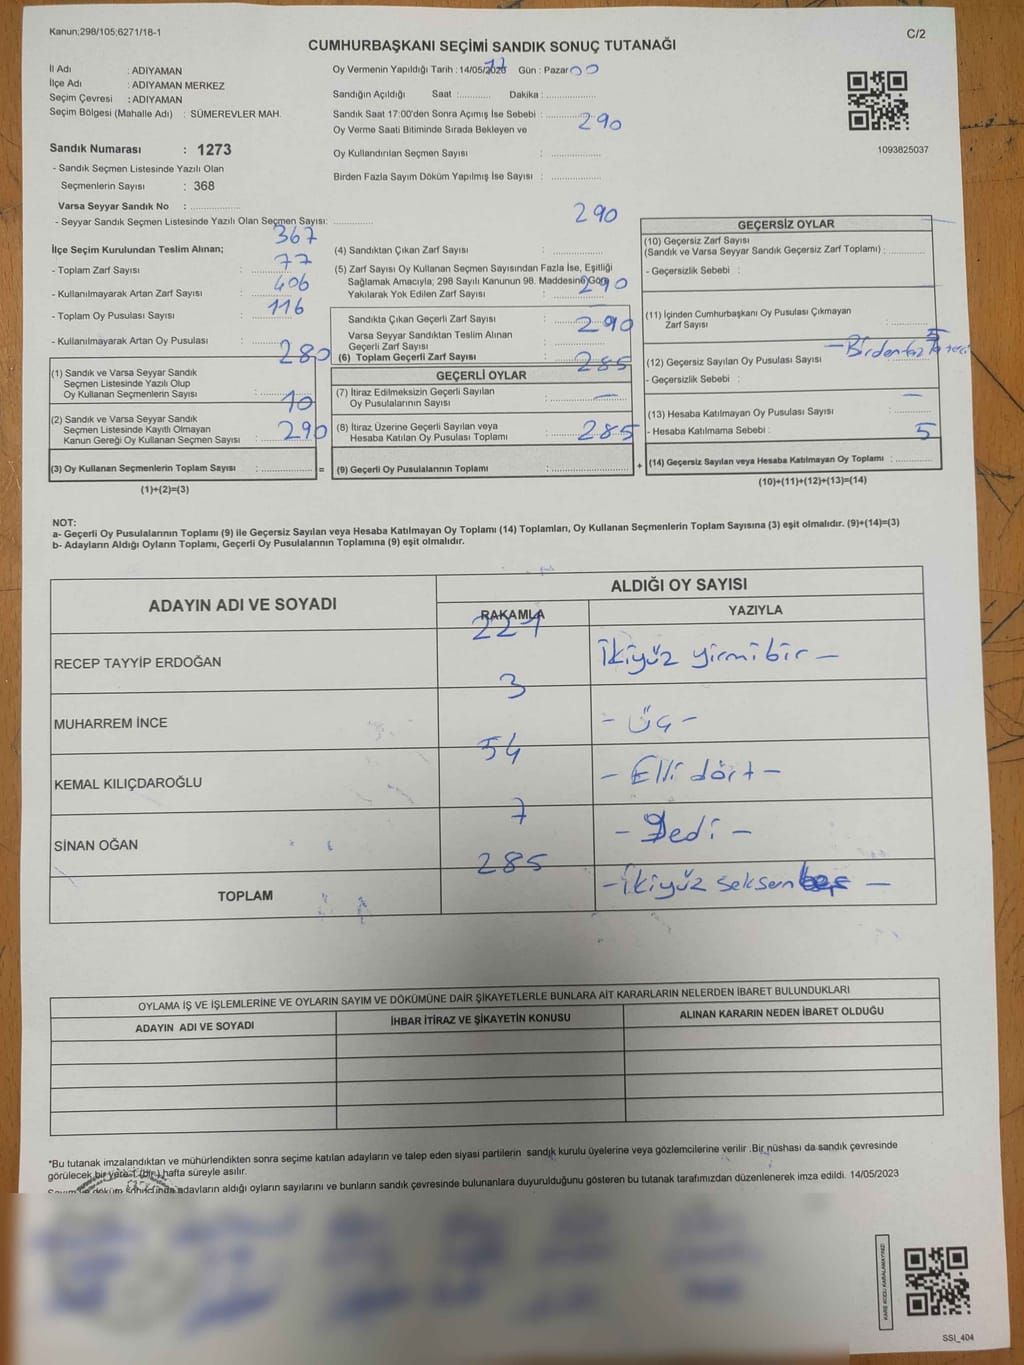 Kanun;298/105;6271/18-1
C/2
CUMHURBAŞKANI SEÇİMİ SANDIK SONUÇ TUTANAĞI
İl Adı : ADIYAMAN
İlçe Adı : ADIYAMAN MERKEZ
Seçim Çevresi : ADIYAMAN
Seçim Bölgesi (Mahalle Adı) : SÜMEREVLER MAH.
Sandık Numarası : 1273
- Sandık Seçmen Listesinde Yazılı Olan
Seçmenlerin Sayısı : 368
Varsa Seyyar Sandık No : ................
- Seyyar Sandık Seçmen Listesinde Yazılı Olan Seçmen Sayısı: ............
Oy Vermenin Yapıldığı Tarih : 14/05/2023 Gün : Pazar
Sandığın Açıldığı Saat :.......... Dakika : ................
17 00
Sandık Saat 17:00'den Sonra Açımış İse Sebebi : ................
Oy Verme Saati Bitiminde Sırada Bekleyen ve
290
Oy Kullandırılan Seçmen Sayısı : ................
Birden Fazla Sayım Döküm Yapılmış İse Sayısı : ................
1093825037
İlçe Seçim Kurulundan Teslim Alınan;
367
- Toplam Zarf Sayısı :
77
- Kullanılmayarak Artan Zarf Sayısı :
406
- Toplam Oy Pusulası Sayısı :
116
- Kullanılmayarak Artan Oy Pusulası :
280
(1) Sandık ve Varsa Seyyar Sandık
Seçmen Listesinde Yazılı Olup
Oy Kullanan Seçmenlerin Sayısı :
10
(2) Sandık ve Varsa Seyyar Sandık
Seçmen Listesinde Kayıtlı Olmayan
Kanun Gereği Oy Kullanan Seçmen Sayısı :
290
(3) Oy Kullanan Seçmenlerin Toplam Sayısı : =
(1)+(2)=(3)
290
(4) Sandıktan Çıkan Zarf Sayısı :
(5) Zarf Sayısı Oy Kullanan Seçmen Sayısından Fazla İse, Eşitliği
Sağlamak Amacıyla; 298 Sayılı Kanunun 98. Maddesine Göre
Yakılarak Yok Edilen Zarf Sayısı :
290
Sandıkta Çıkan Geçerli Zarf Sayısı :
290
Varsa Seyyar Sandıktan Teslim Alınan
Geçerli Zarf Sayısı :
(6) Toplam Geçerli Zarf Sayısı :
285
GEÇERLİ OYLAR
(7) İtiraz Edilmeksizin Geçerli Sayılan
Oy Pusulalarının Sayısı : —
(8) İtiraz Üzerine Geçerli Sayılan veya
Hesaba Katılan Oy Pusulası Toplamı :
285
(9) Geçerli Oy Pusulalarının Toplamı : +
GEÇERSİZ OYLAR
(10) Geçersiz Zarf Sayısı
(Sandık ve Varsa Seyyar Sandık Geçersiz Zarf Toplamı) :
- Geçersizlik Sebebi :
(11) İçinden Cumhurbaşkanı Oy Pusulası Çıkmayan
Zarf Sayısı :
5
(12) Geçersiz Sayılan Oy Pusulası Sayısı
—Birden fazla
- Geçersizlik Sebebi :
(13) Hesaba Katılmayan Oy Pusulası Sayısı : —
- Hesaba Katılmama Sebebi :
5
(14) Geçersiz Sayılan veya Hesaba Katılmayan Oy Toplamı :
(10)+(11)+(12)+(13)=(14)
NOT:
a- Geçerli Oy Pusulalarının Toplamı (9) ile Geçersiz Sayılan veya Hesaba Katılmayan Oy Toplamı (14) Toplamları, Oy Kullanan Seçmenlerin Toplam Sayısına (3) eşit olmalıdır. (9)+(14)=(3)
b- Adayların Aldığı Oyların Toplamı, Geçerli Oy Pusulalarının Toplamına (9) eşit olmalıdır.
ADAYIN ADI VE SOYADI
ALDIĞI OY SAYISI
RAKAMLA YAZIYLA
RECEP TAYYİP ERDOĞAN 221 İkiyüz yirmibir —
MUHARREM İNCE 3 - Üç -
KEMAL KILIÇDAROĞLU 54 - Elli dört -
SİNAN OĞAN 7 - Yedi -
TOPLAM 285 -İkiyüz seksen beş —
OYLAMA İŞ VE İŞLEMLERİNE VE OYLARIN SAYIM VE DÖKÜMÜNE DAİR ŞİKAYETLERLE BUNLARA AİT KARARLARIN NELERDEN İBARET BULUNDUKLARI
ADAYIN ADI VE SOYADI İHBAR İTİRAZ VE ŞİKAYETİN KONUSU ALINAN KARARIN NEDEN İBARET OLDUĞU
*Bu tutanak imzalandıktan ve mühürlendikten sonra seçime katılan adayların ve talep eden siyasi partilerin sandık kurulu üyelerine veya gözlemcilerine verilir .Bir nüshası da sandık çevresinde
görülecek bir yere 1 (bir) hafta süreyle asılır.
Sayım ve döküm sonucunda adayların aldığı oyların sayılarını ve bunların sandık çevresinde bulunanlara duyurulduğunu gösteren bu tutanak tarafımızdan düzenlenerek imza edildi. 14/05/2023
KARE KODU KARALAMAYINIZ!
SSI_404